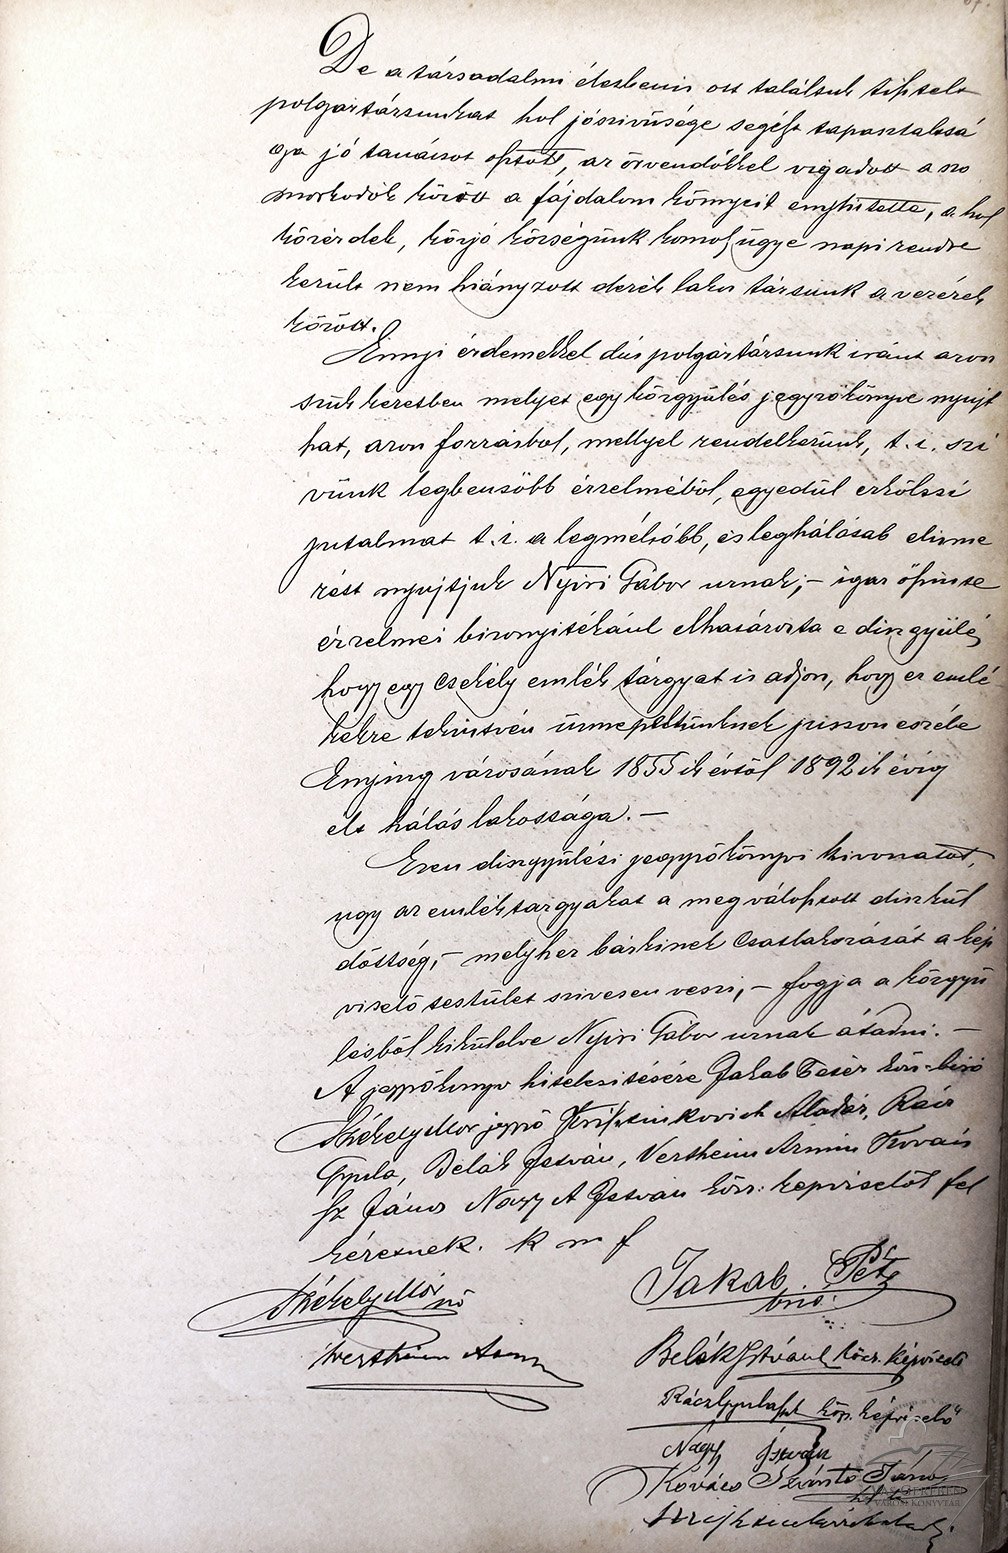 De a társadalmi életben is ott találtuk tisztelt
polgártársunkat hol jószivüsége segélt tapasztaltsá
ga jó tanácsot osztott, az örvendőkkel vigadott a szo
morkodók között a fájdalom könnyeit enyhitette, a hol
közérdek, közjó községünk komoly ügye napi rendre
került nem hiányzott derék lakos társunk a vezérek
között.
Ennyi érdemekkel dús polgártársunk iránt azon
szük keretben melyet egy közgyülés jegyzőkönyve nyujt
hat, azon forrásbol, mellyel rendelkezünk, t. i. szi
vünk legbensőbb érzelméből, egyedül erkölcsi
jutalmat t. i. a legmélyebb, és leghálásab elisme
rést nyujtjuk Nyiri Gábor urnak; – igaz őszinte
érzelmei bizonyitékául elhatározta e diszgyülés
hogy egy csekély emlék tárgyat is adjon, hogy ez emlé
kekre tekintvén ünnepeltünknek jusson eszébe
Enying városának 1855ik évtől 1892ik évig
élt hálás lakossága. –
Ezen diszgyülési jegyzőkönyvi kivonatot,
ugy az emléktargyakat a megválasztott diszkül
döttség, – melyhez bárkinek csatlakozását a kép
viselő testület szivesen veszi, – fogja a közgyü
lésből kiküldve Nyiri Gábor urnak átadni. –
A jegyzőkönyv hitelesitésére Jakab Péter közs. biró
Székely Mór jegyző Aladár, Rácz
Gyula, Belák István, Vertheim Armin Kovács
Sz János Nagy A István közs. képviselők fel
kéretnek. k m f
Székely Mór Jakab Péter
biró.
Wertheim Armin Belák István közs. képviselő
Rácz Gyula közs. képviselő
Nagy István
Kovács Szántó János
VÁROSI KÖNYVTÁR